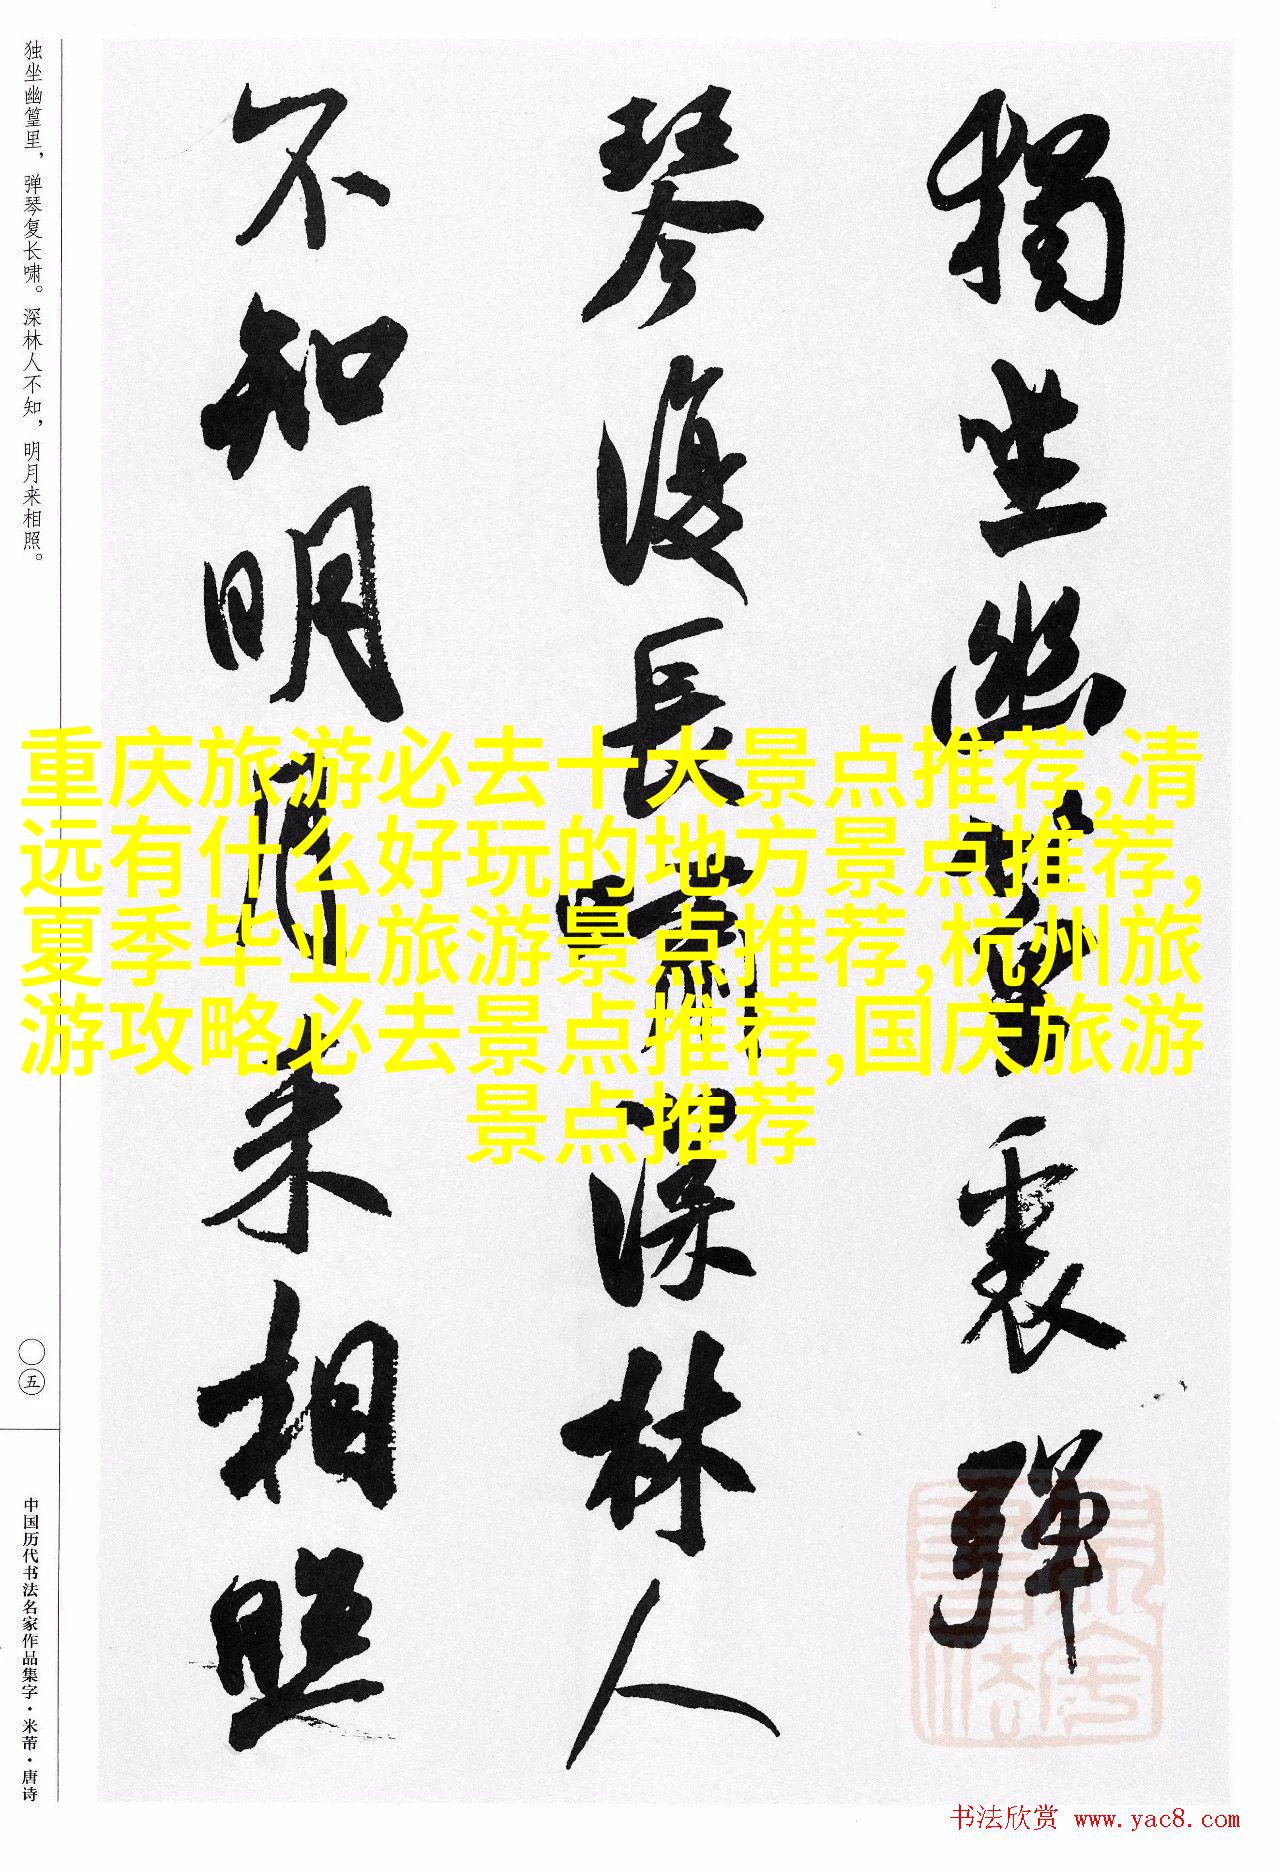 獨坐幽篁裏彈
琴復長嘯深林人
不知明月来相照
独坐幽篁里，弹琴复长啸。深林人不知，明月来相照。
〇五
中国历代书法名家作品集字·米芾·唐诗
重庆旅游必去十大景点推荐,清
远有什么好玩的地方景点推荐,
夏季毕业旅游景点推荐,杭州旅
游攻略必去景点推荐,国庆旅游
景点推荐
书法欣赏 www.yac8.com